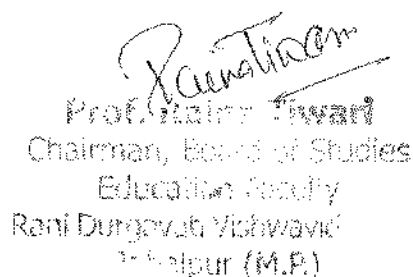 Prof. Tiwari
Chairman, Board of Studies
Education Faculty
Rani Durgavati Vishwavid
(M.P.)